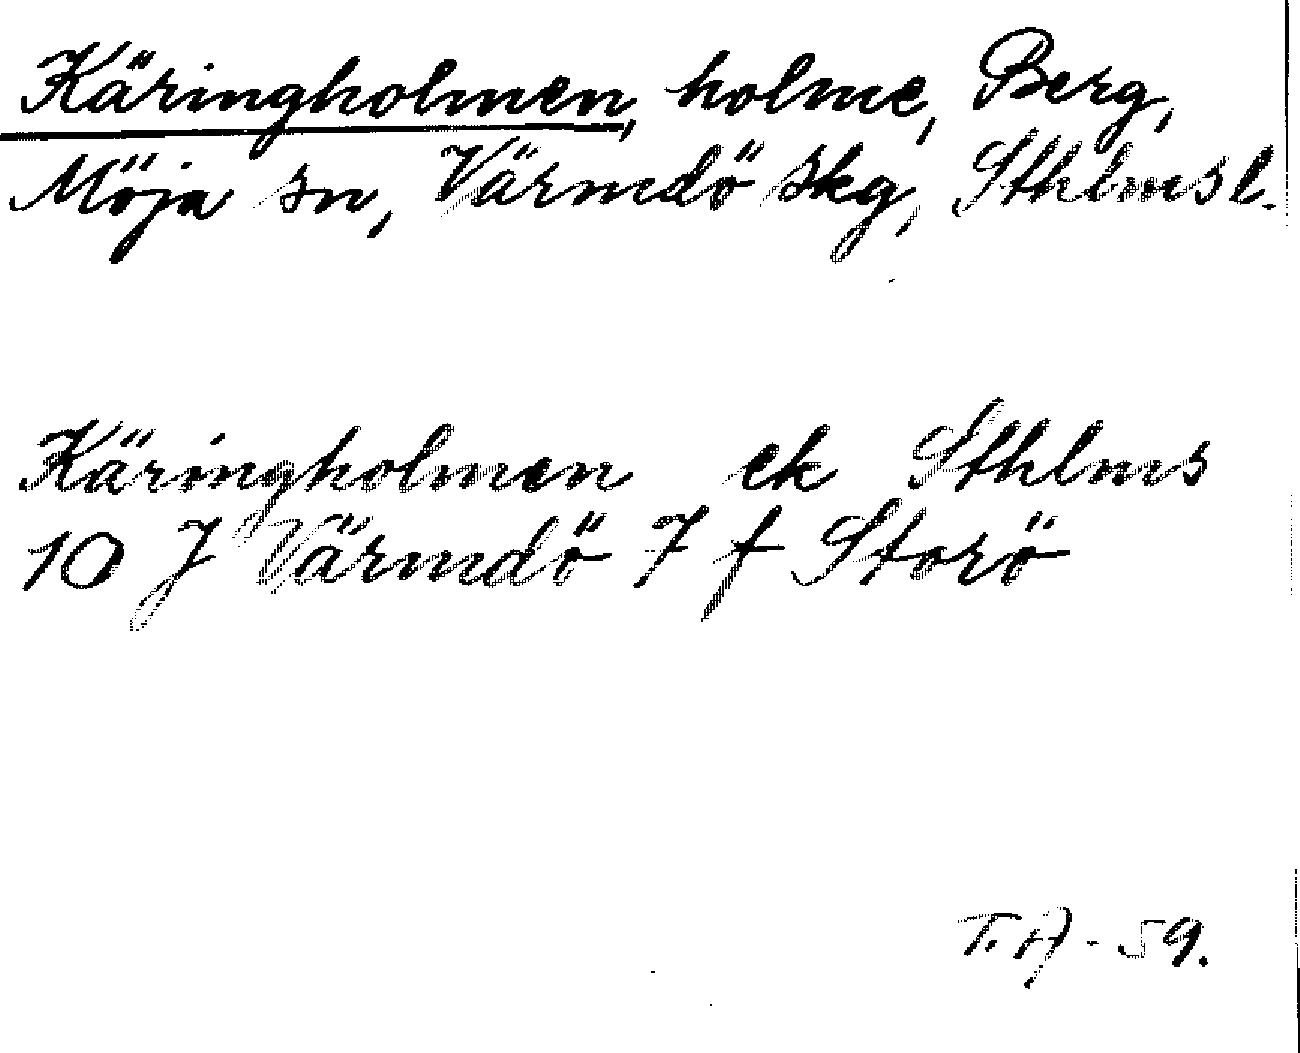 Käringholmen, holme, Berg,
Möja sn, Värmdö skg, Sthlms l.
Käringholmen ek Sthlms
10 J Värmdö 7 f Storö
T.A-59.